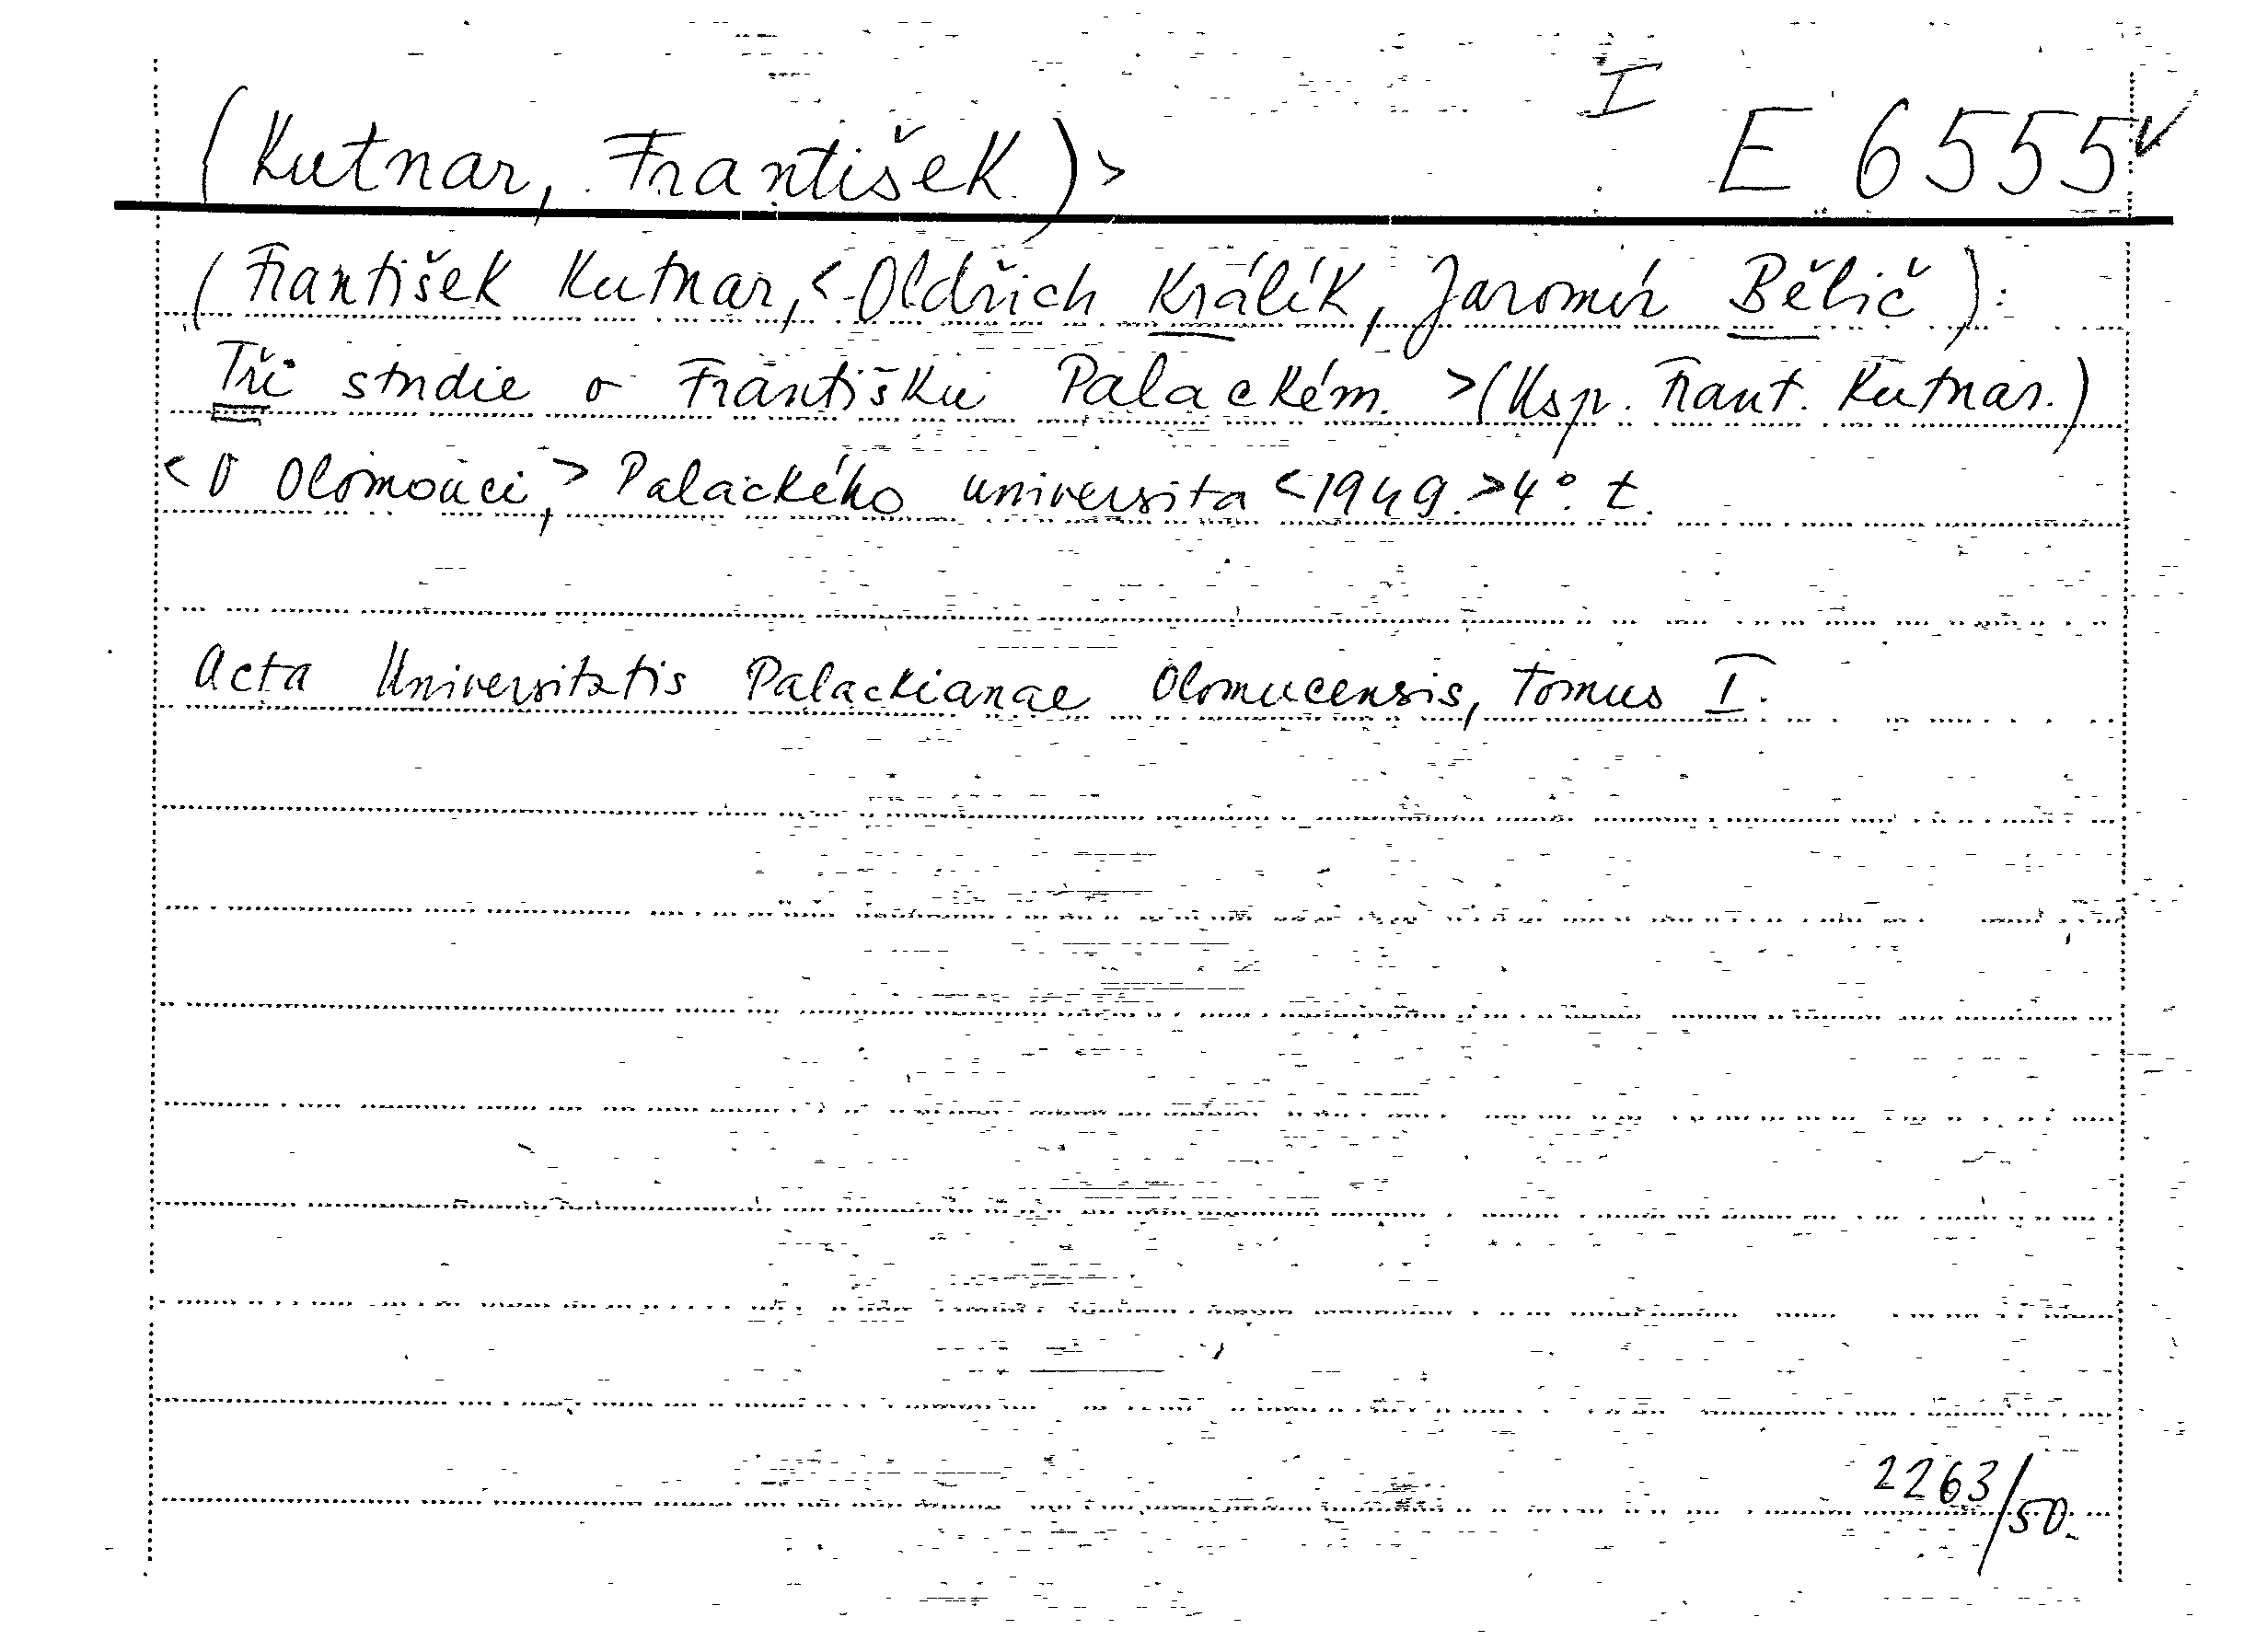 I
(Kutnar, František.)> E 6555
(František Kutnar, <Oldřich Králík, Jaromír Bělič):
Tři studie o Františku Palackém. >(Usp. Frant. Kutnar.)
<V Olomouci,> Palackého universita <1949.>4°. t.
Acta Universitatis Palackianae Olomucensis, Tomus I.
2263/50.